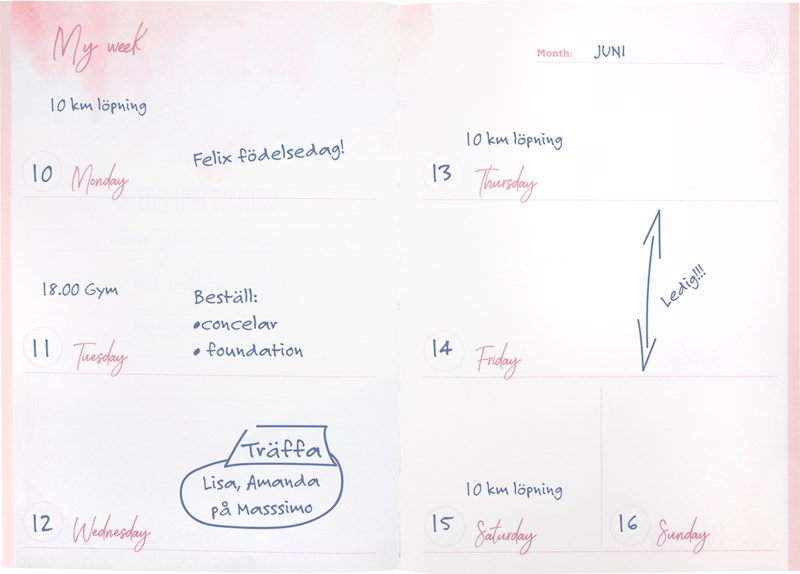 My week
10 km löpning
Felix födelsedag!
10 Monday
18.00 Gym
Beställ:
•concelar
• foundation
11 Tuesday
Träffa
Lisa, Amanda
på Masssimo
12 Wednesday
Month: JUNI
10 km löpning
13 Thursday
Ledig!!!
14 Friday
10 km löpning
15 Saturday
16 Sunday